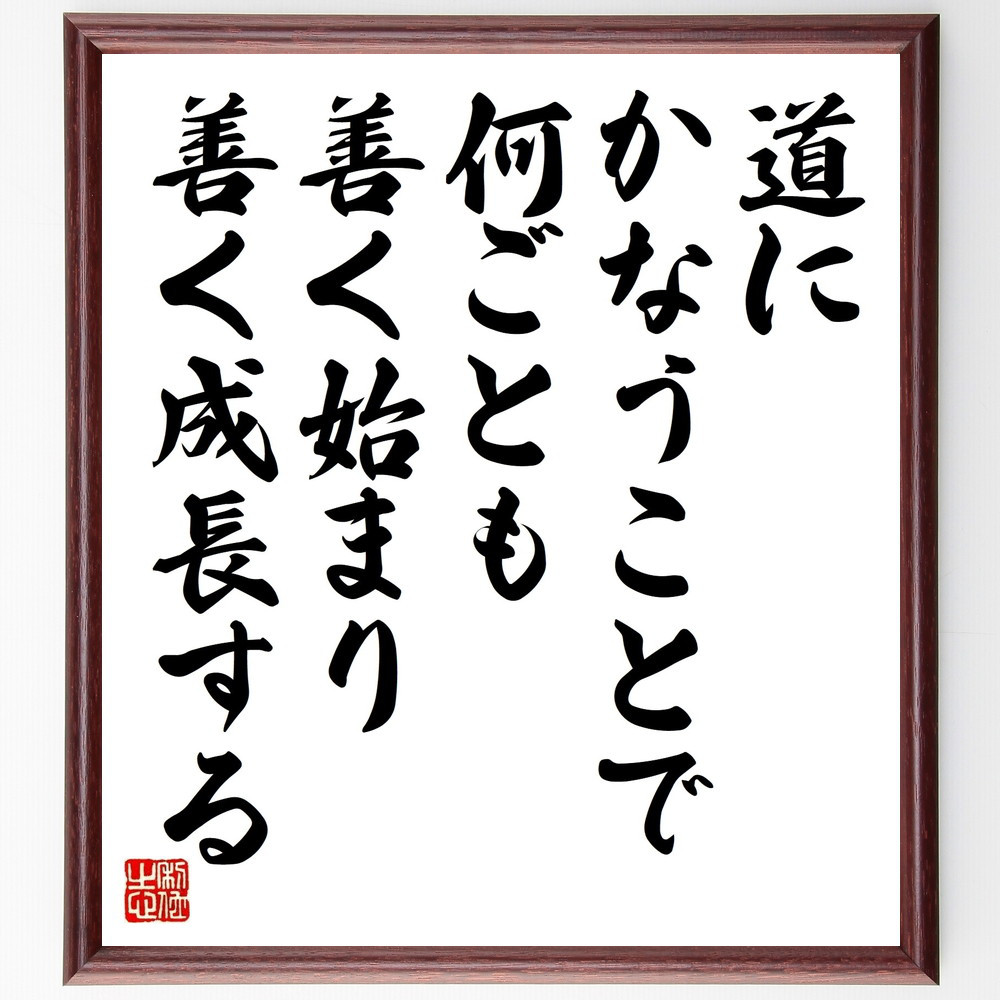 道に
かなうことで
何ごとも
善く始まり
善く成長する